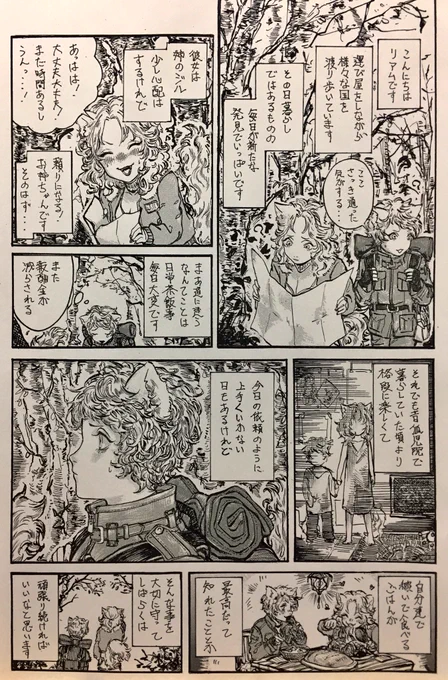 こんにちは
リアムです
運び屋をしながら
様々な国を
渡り歩いています
その日暮らし
ではあるものの
毎日が新たな
発見でいっぱいです
ここ
さっき通った
気がする…
彼女は
姉のシル
少し心配は
するけれど
あっはは!
大丈夫大丈夫!
まだ時間あるし
うん…!
頼りになる
お姉ちゃんです
そのはず…
まあ道に迷う
なんてことは
日常茶飯事
毎日大変です
また
報酬金が
減らされる
それでも昔孤児院で
暮らしていた頃より
格段に楽しくて
今日の依頼のように
上手くいかない
日もあるけれど
自分達で
稼いで食べる
ごはんが
最高だって
知れたことが
そんな事を
大切に守って
しばらくは
頑張り続ければ
いいなと思います